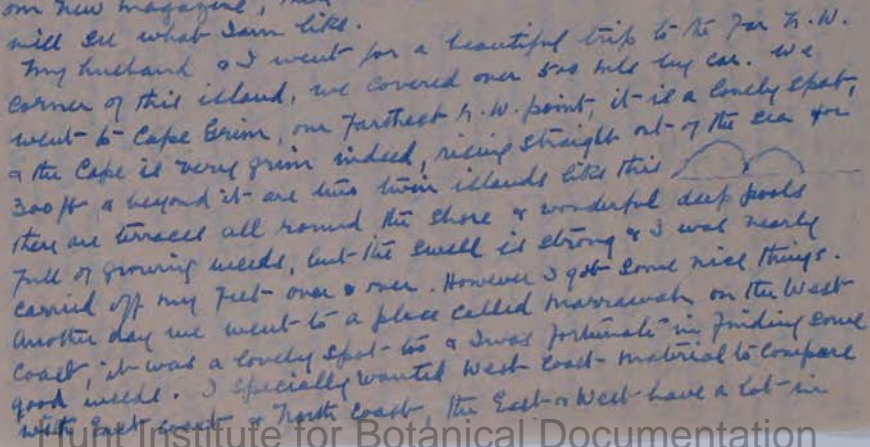 our new magazine, then
will see what I am like.
My husband & I went for a beautiful trip to the far N.W.
corner of this island, we covered over 500 mls by car. We
went to Cape Grim, our farthest N.W. point, it is a lonely spot,
& the Cape is very grim indeed, rising straight out of the sea for
300 ft, & beyond it are two twin islands like this
there are terraces all round the shore & wonderful deep pools
full of growing weeds, but the swell is strong & I was nearly
carried off my feet over & over. However I got some nice things.
Another day we went to a place called Marrawah on the West
Coast, it was a lovely spot too & I was fortunate in finding some
good weeds. I specially wanted West Coast material to compare
with East coast & North Coast, the East & West have a lot in
Hunt Institute for Botanical Documentation